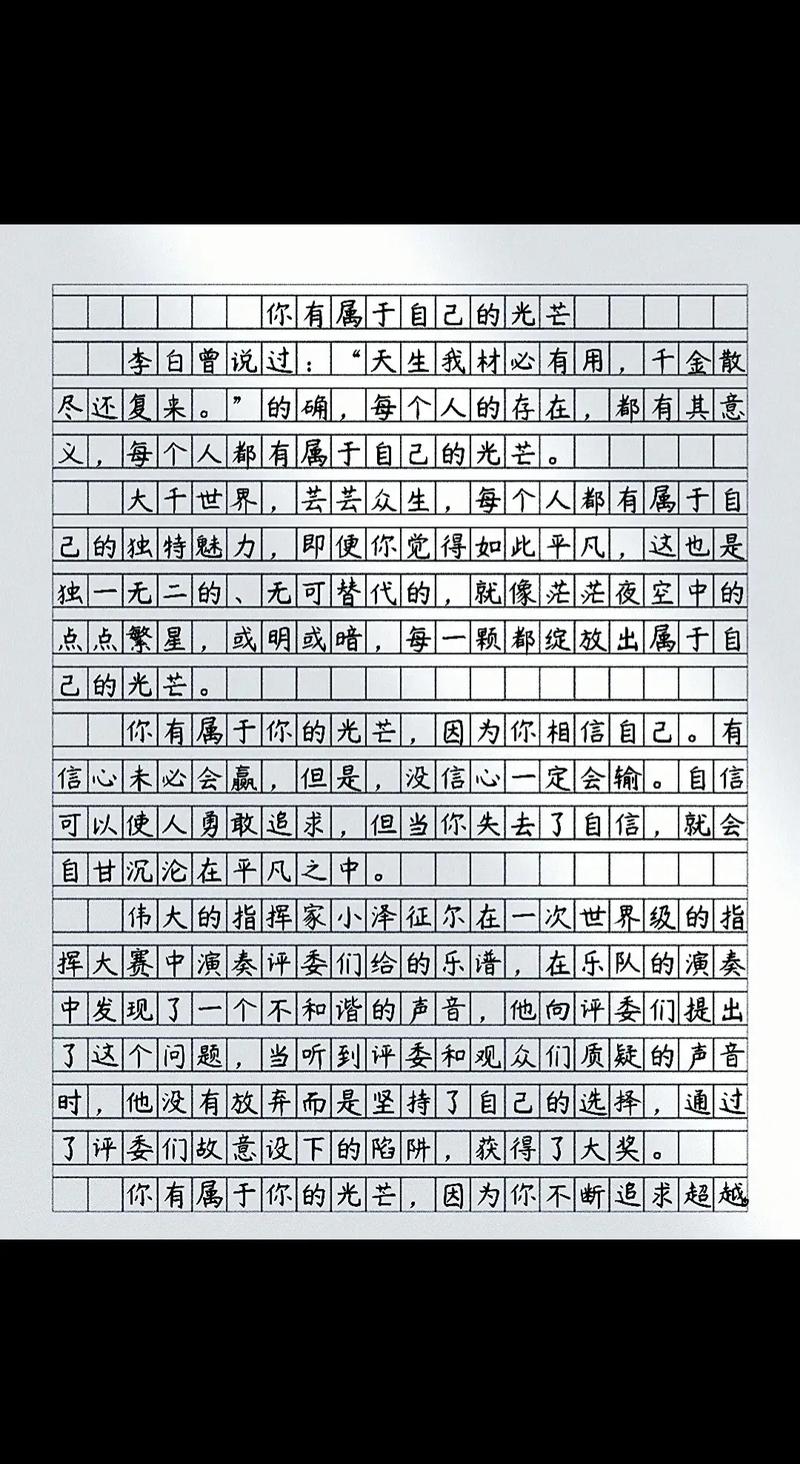 你有属于自己的光芒
李白曾说过：“天生我材必有用，千金散
尽还复来。”的确，每个人的存在，都有其意
义，每个人都有属于自己的光芒。
大千世界，芸芸众生，每个人都有属于自
己的独特魅力，即便你觉得如此平凡，这也是
独一无二的、无可替代的，就像茫茫夜空中的
点点繁星，或明或暗，每一颗都绽放出属于自
己的光芒。
你有属于你的光芒，因为你相信自己。有
信心未必会赢，但是，没信心一定会输。自信
可以使人勇敢追求，但当你失去了自信，就会
自甘沉沦在平凡之中。
伟大的指挥家小泽征尔在一次世界级的指
挥大赛中演奏评委们给的乐谱，在乐队的演奏
中发现了一个不和谐的声音，他向评委们提出
了这个问题，当听到评委和观众们质疑的声音
时，他没有放弃而是坚持了自己的选择，通过
了评委们故意设下的陷阱，获得了大奖。
你有属于你的光芒，因为你不断追求超越。